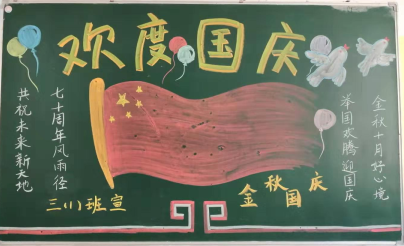 欢度国庆
金秋十月好心境
举国欢腾迎国庆
七十周年风雨径
共祝未来新天地
三(1)班宣
金秋国庆